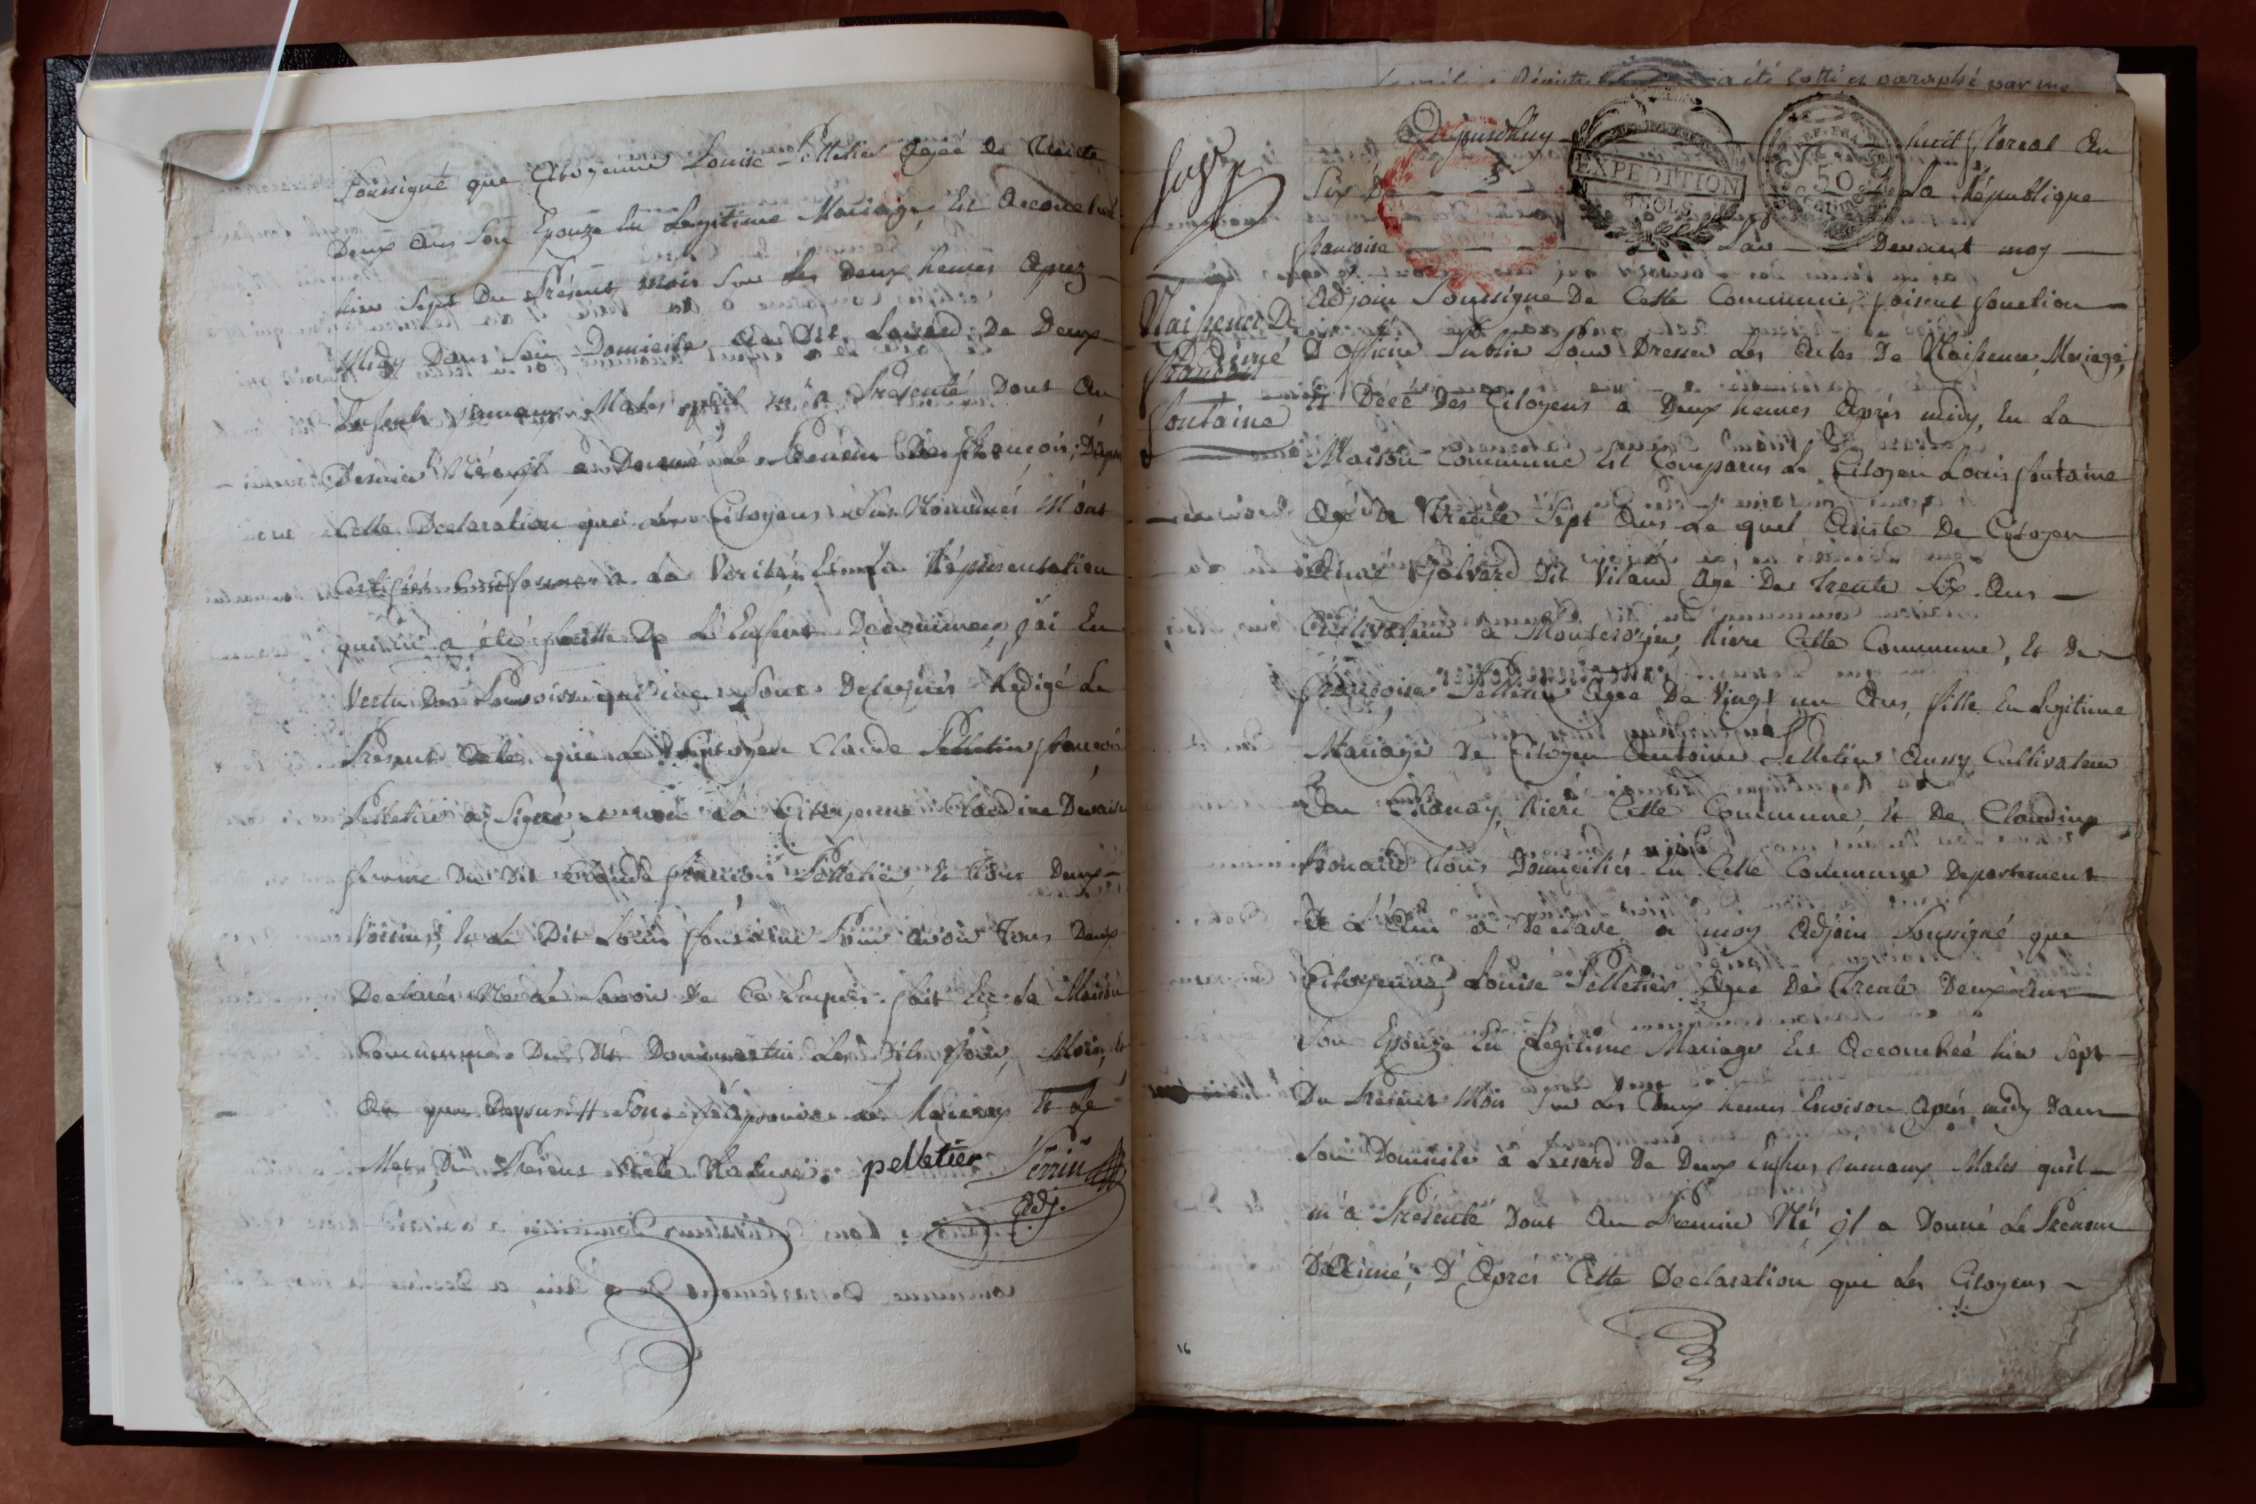 Soussigné que Citoyenne Louise Pelletier Agée de Trente
Deux Ans Son Epouze En Legitime Mariage Est Accouchée
hier Sept Du Présent Mois Sur Les Deux heures Aprez
Midy Dans Son Domicile De Deux
Enfents Jumaux Males qu'il m'a Présenté Dont Au
Dernier Né Il a Donné Le Prenom De francois, D'après
Cette Declaration que Les Citoyens Sus Nommés M'ont
Certifiés Conforme a La Verité, Et La Représentation
qui m'a été faitte De L'Enfent Denommé, j'ai En
Vertu Des Pouvoirs qui me Sont Delegués Redigé Le
Présent Acte que Le Citoyen Claude francois
Pelletier a Signé et non La Citoyenne Claudine
femme Du Dit Claude francois Pelletier Et Tous Deux
Voisins, Et Le Dit Louis fontaine Pour avoir Tous Deux
Declarés Ne Le Savoir De Ce Enquis, fait En La Maison
Commune Du Dit Dommartin Les Dits Jour, Mois, Et
An que Dessus
Du Présent Acte pelletier Perrin
Adj.
EXPEDITION
50
Aujourdhuy huit floreal An
Six De La République
francoise Par Devant moy
Naissence De
Aximé
francois
fontaine
Adjoin Soussigné De Cette Commune, faisent fonction
D'Officier Public Pour Dresser Les Actes De Naissence, Mariage,
Et Décé Des Citoyens a Deux heures Après midy, En La
Maison Commune Est Comparus Le Citoyen Louis fontaine
Agé De Trente Sept Ans Le quel Assisté De Citoyen
Dit Vitaud Agé De Trente Six Ans
Cultivateur a Riere Cette Commune, Et De
francoise Pelletier Agée De Vingt un Ans, fille En Legitime
Mariage De Citoyen Antoine Pelletier Aussy Cultivateur
Au Chanay, Riere Cette Commune, Et De Claudine
Tous Domiciliés En Cette Commune Departement
De L'Ain a Declaré a moy Adjoin Soussigné que
Citoyenne Louise Pelletier Agée De Trente Deux Ans
Son Epouze En Legitime Mariage Est Accouchée hier Sept
Du Présent Mois Sur Les Deux heures Environ Après midy Dans
Son Domicile à De Deux Enfens Jumaux Males qu'il
m'a Présenté Dont Au Premier Né, Il a Donné Le Prenom
D'Aximé, D'Après Cette Declaration que Les Citoyens